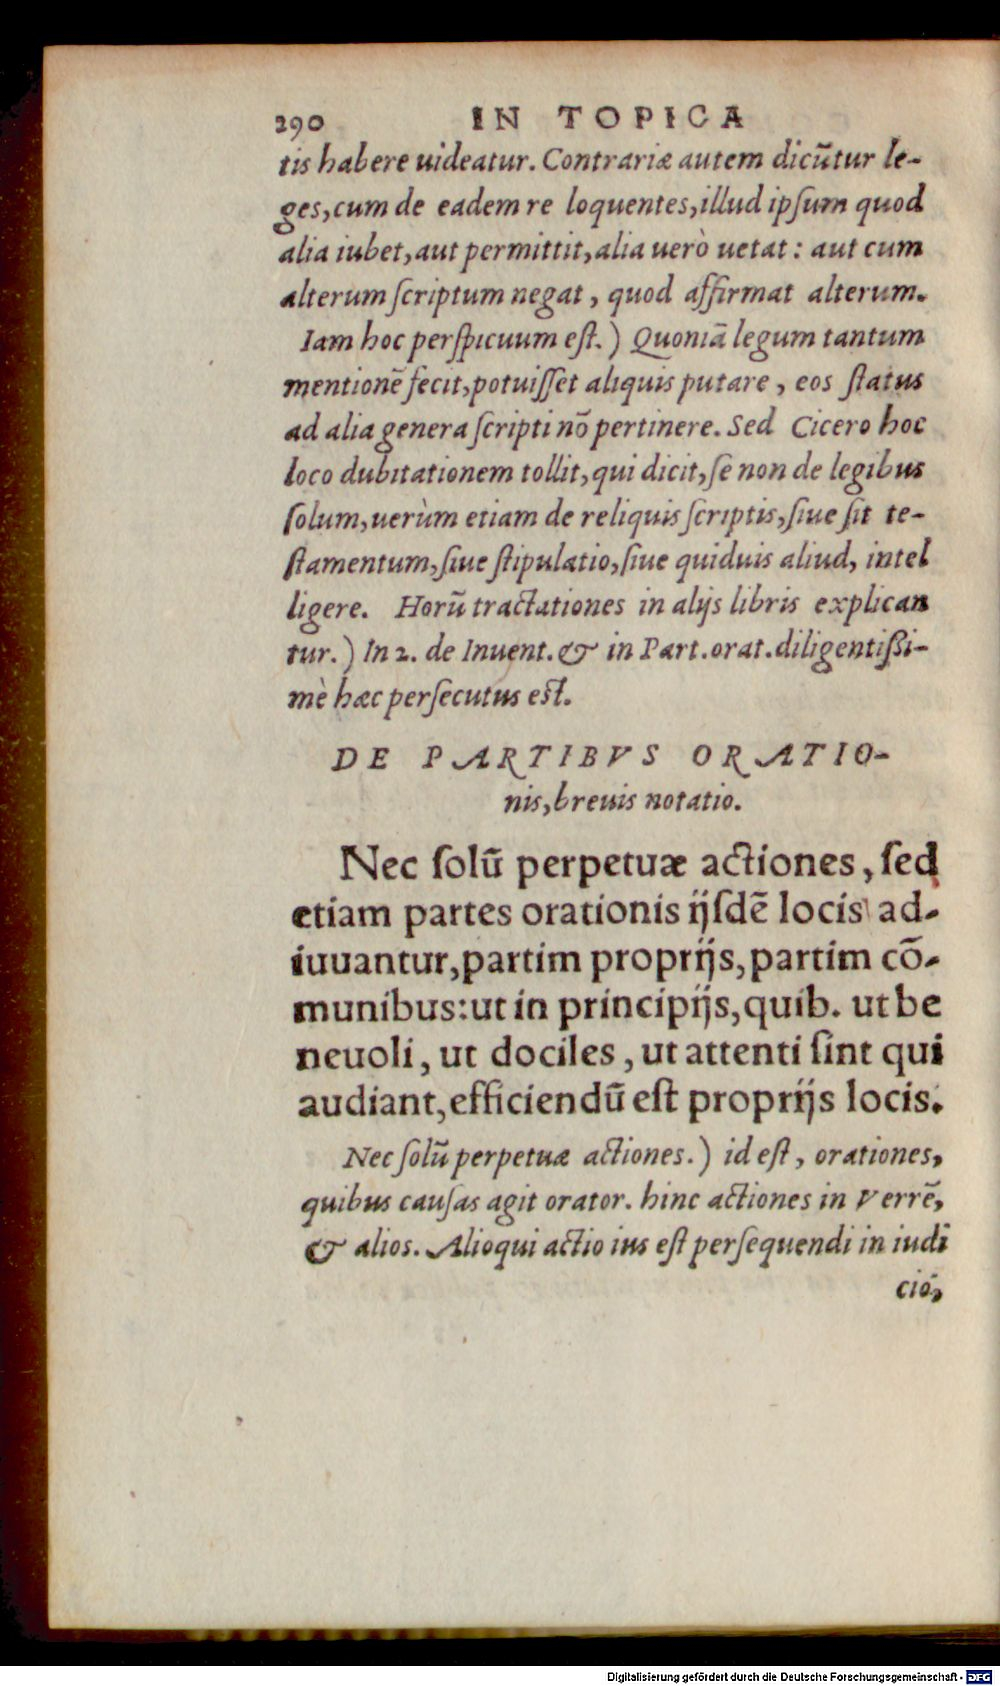 290 IN TOPICA
tis habere uideatur. Contrariæ autem dicũtur le-
ges, cum de eadem re loquentes, illud ipſum quod
alia iubet, aut permittit, alia uerò uetat: aut cum
alterum ſcriptum negat, quod affirmat alterum.
Iam hoc perſpicuum eſt.) Quoniã legum tantum
mentionẽ fecit, potuiſſet aliquis putare, eos ſtatus
ad alia genera ſcripti nõ pertinere. Sed Cicero hoc
loco dubitationem tollit, qui dicit, ſe non de legibus
ſolum, uerùm etiam de reliquis ſcriptis, ſiue ſit te-
ſtamentum, ſiue ſtipulatio, ſiue quiduis aliud, intel
ligere. Horũ tractationes in alijs libris explican
tur.) In 2. de Inuent. & in Part. orat. diligentißi-
mè hæc perſecutus eſt.
DE PARTIBVS ORATIO-
nis, breuis notatio.
Nec ſolũ perpetuæ actiones, ſed
etiam partes orationis ijſdẽ locis ad-
iuuantur, partim proprijs, partim cõ-
munibus: ut in principijs, quib. ut be
neuoli, ut dociles, ut attenti ſint qui
audiant, efficiendũ eſt proprijs locis.
Nec ſolũ perpetuæ actiones.) id eſt, orationes,
quibus cauſas agit orator. hinc actiones in Verrẽ,
& alios. Alioqui actio ius eſt perſequendi in iudi
cio,
Digitalisierung gefördert durch die Deutsche Forschungsgemeinschaft - DFG